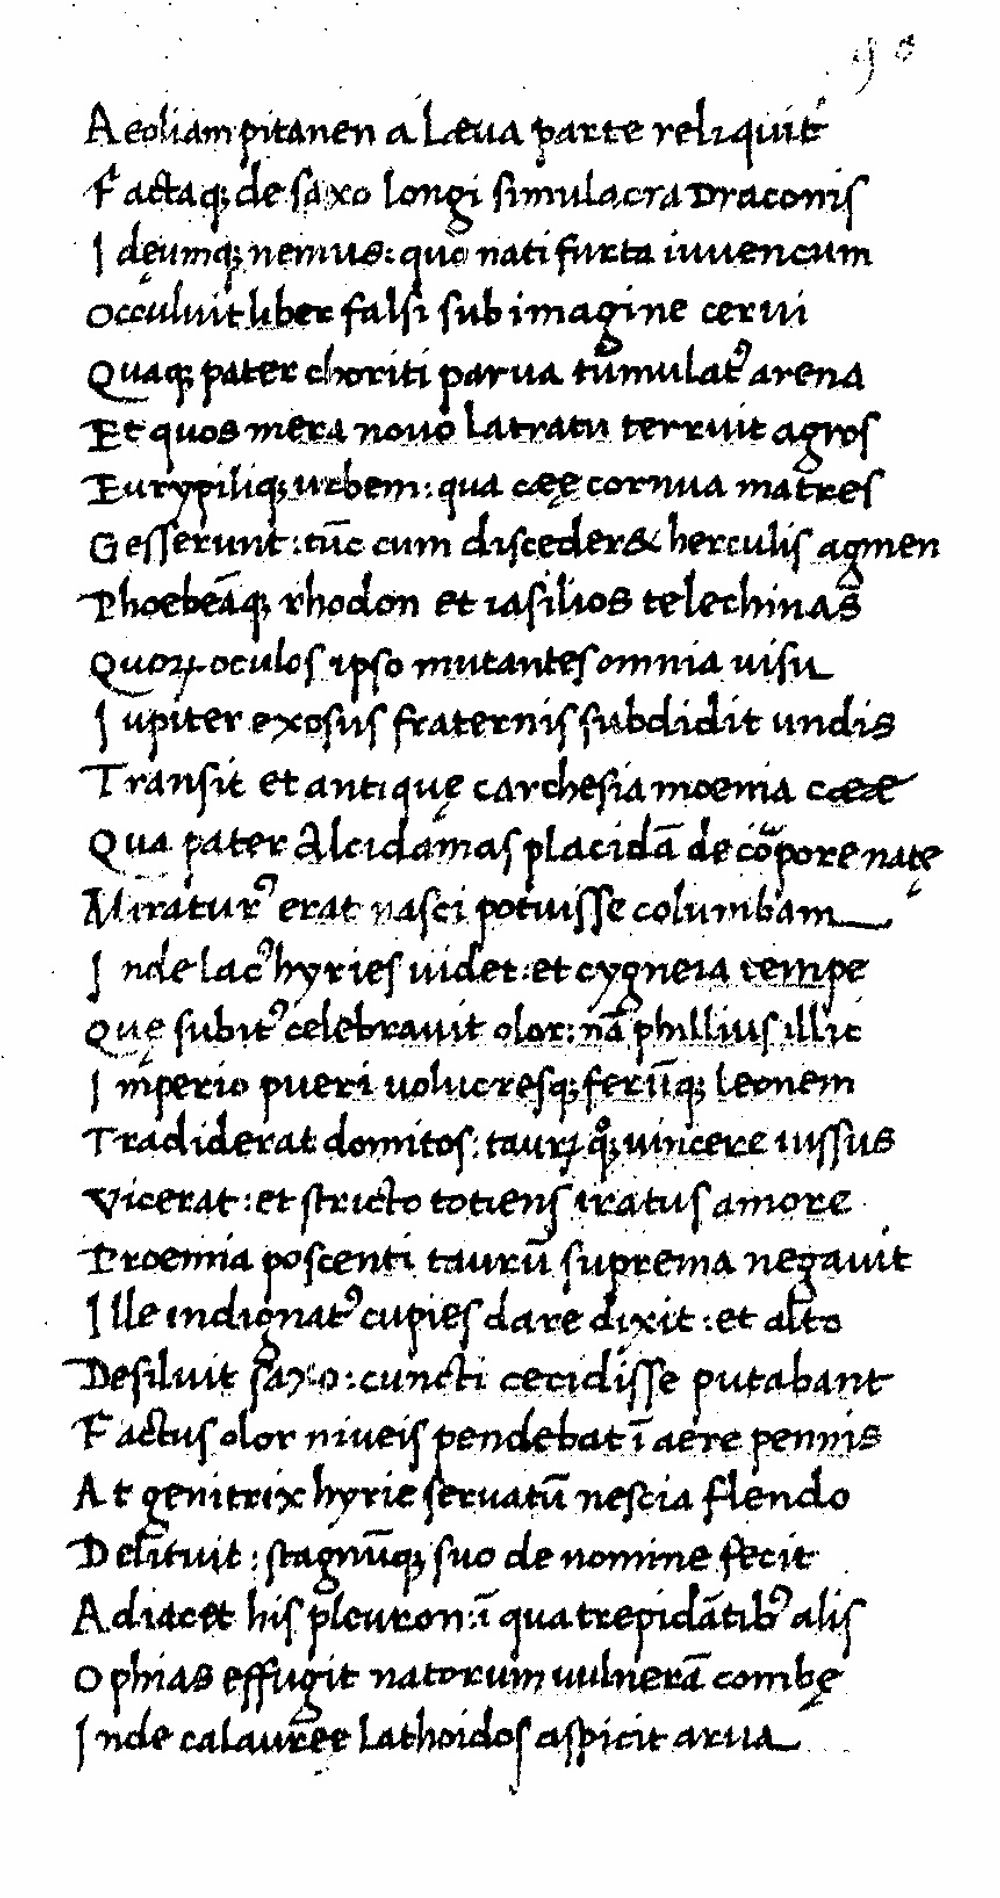 90
Aeoliam pitanen a læua parte reliquit
Factaq; de saxo longi simulacra draconis
Idęumq; nemus: quo nati furta iuuencum
Occuluit liber falsi sub imagine cerui
Quaq; pater choriti parua tumulatꝰ arena
Et quos mera nouo latratu terruit agros
Eurypiliq; urbem: qua cęę cornua matres
Gesserunt: tūc cum disceder& herculis agmen
Phoebeāq; rhodon et iasilios telechinas
Quoꝝ oculos ipso mutantes omnia uisu
Iupiter exosus fraternis subdidit undis
Transit et antiquę carchesia moenia cææ
Qua pater Alcidamas placidā de corpore natę
Miraturꝰ erat nasci potuisse columbam
Inde lacꝰ hyries uidet: et cygneia tempe
Quę subitꝰ celebrauit olor: nā phillius illic
Imperio pueri uolucresq; ferūq; leonem
Tradiderat domitos: tauꝝ qͦq; uincere iussus
Vicerat: et stricto totiens iratus amore
Proemia poscenti taurū suprema negauit
Ille indignatꝰ cupies dare dixit: et alto
Desiluit saxo: cuncti cecidisse putabant
Factus olor niueis pendebat ī aere pennis
At genitrix hyrie seruatū nescia flendo
Delituit: stagnūq; suo de nomine fecit
Adiacet his pleuron: ī qua trepidātibꝰ alis
Ophias effugit natorum uulnerā combę
Inde calaureę lathoidos aspicit arua